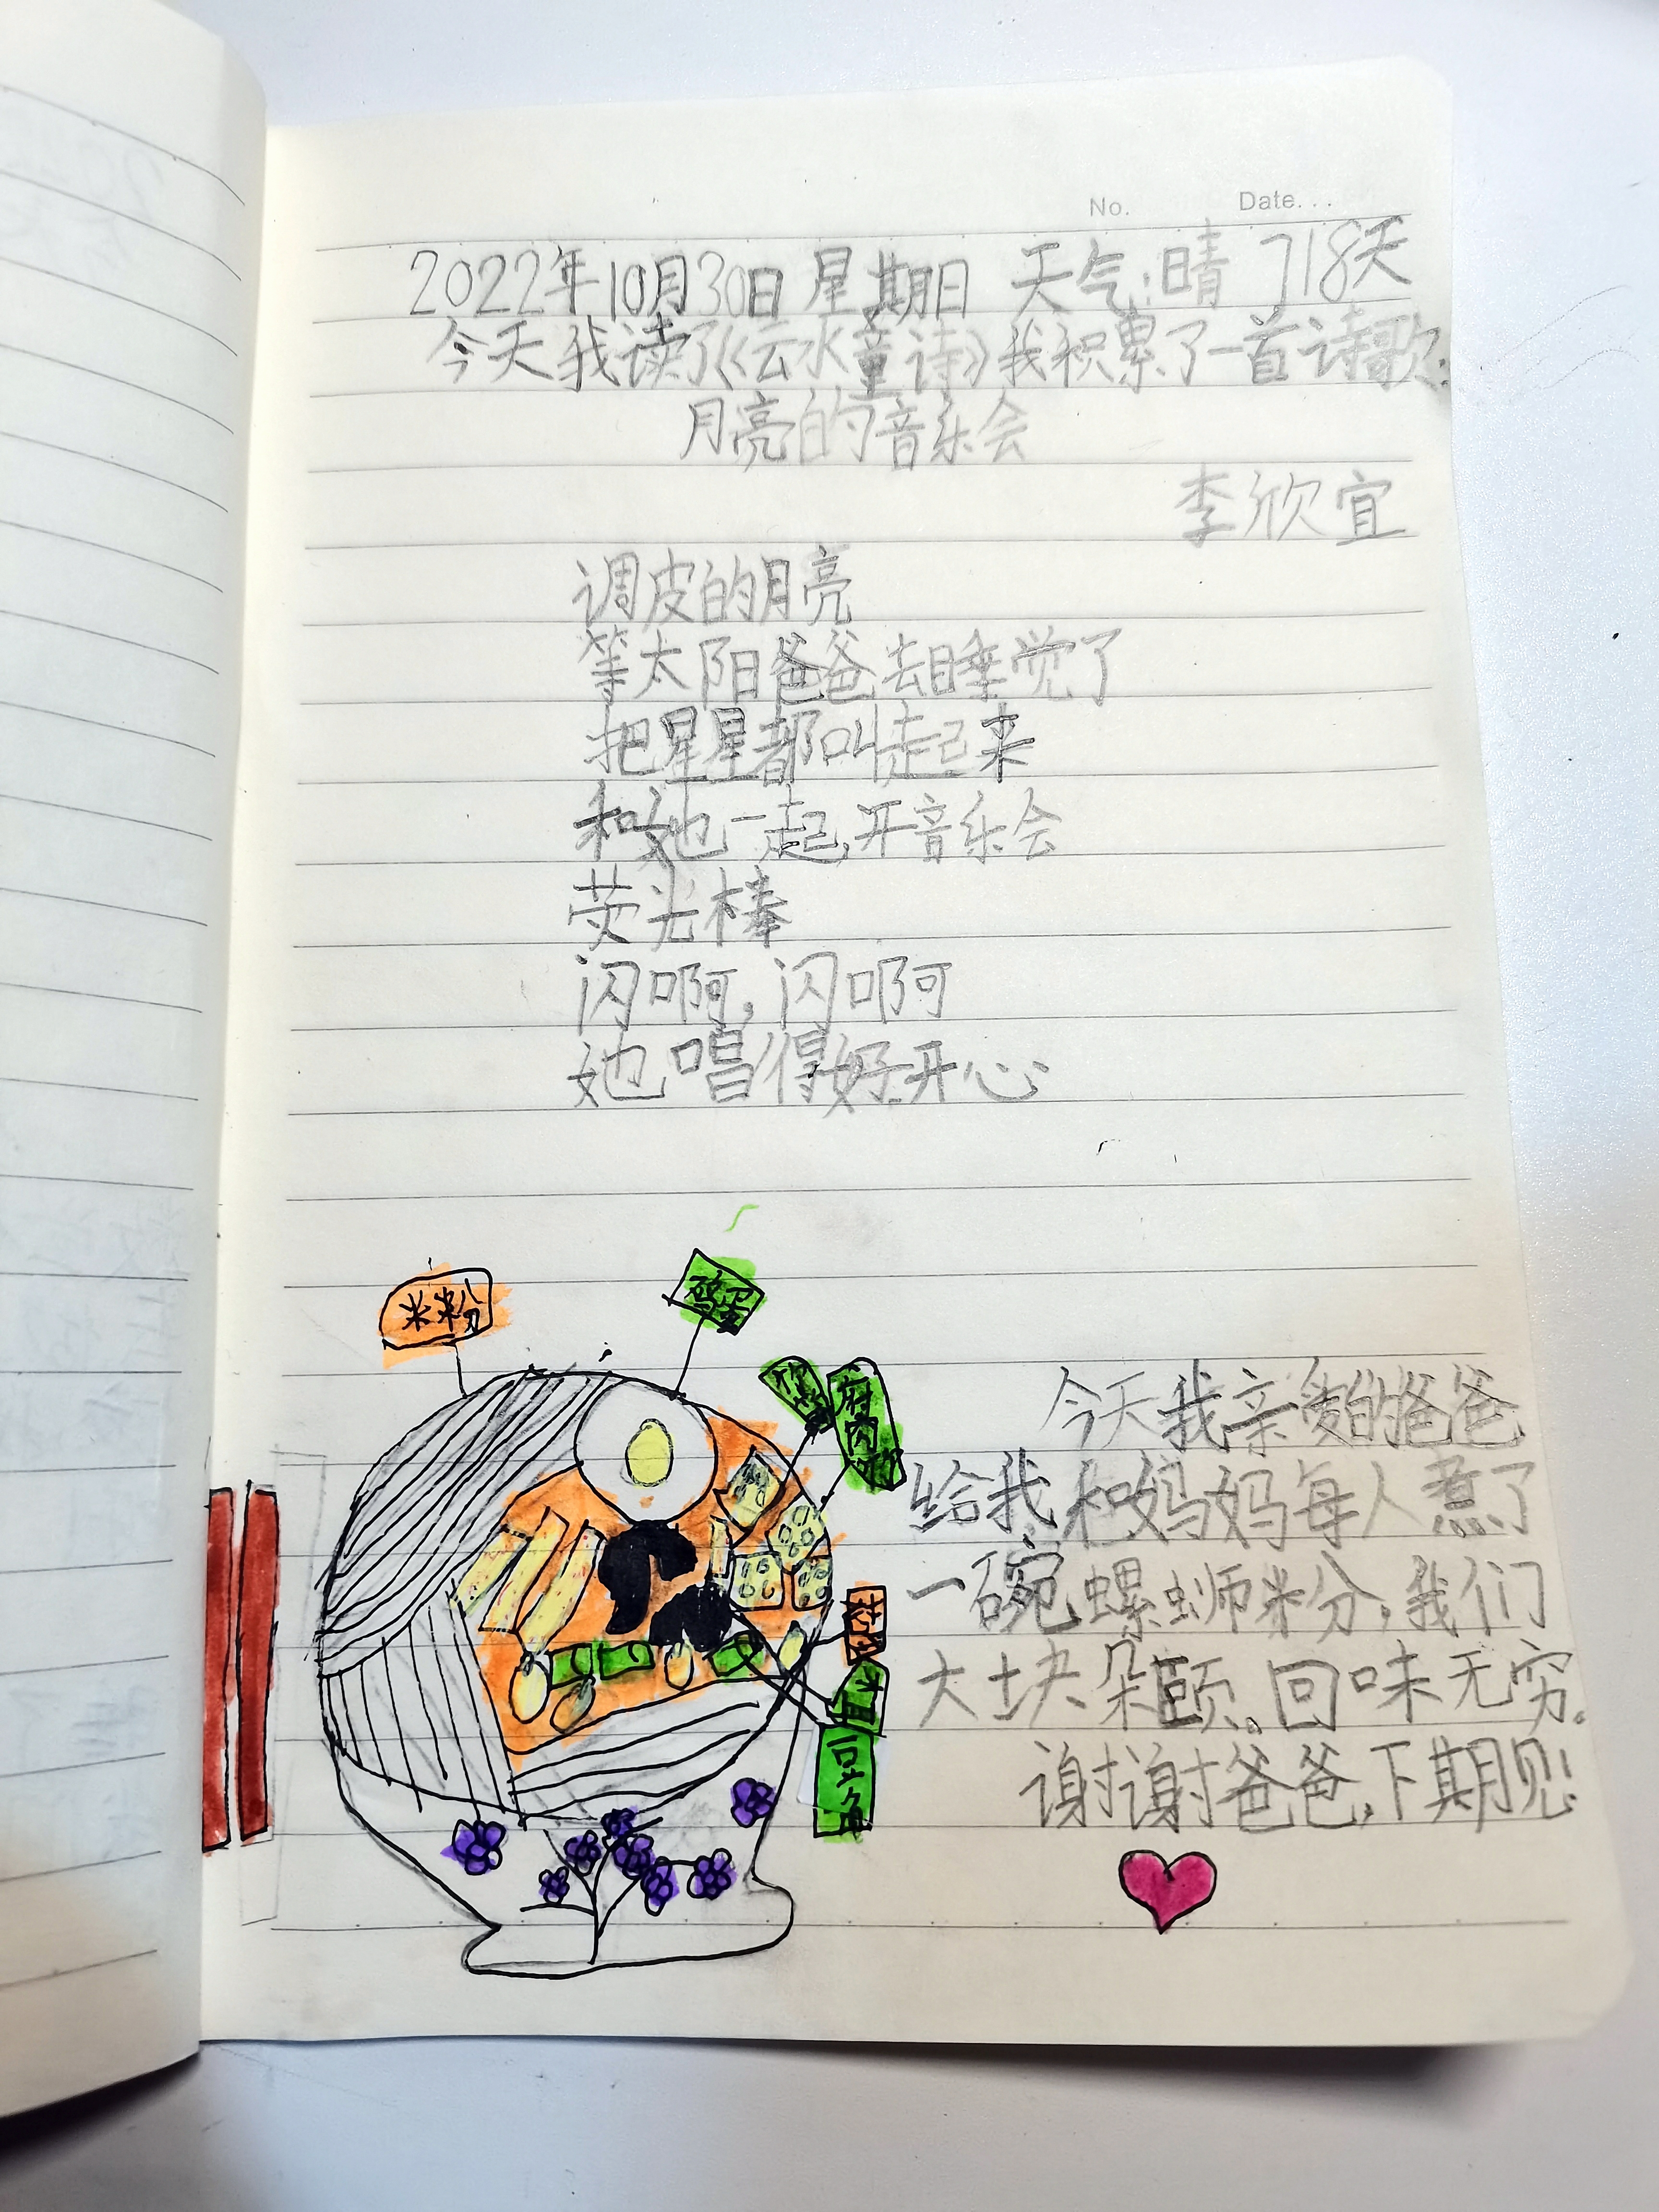 No. Date...
2022年10月30日 星期日 天气:晴 718天
今天我读了《云水童诗》我积累了一首诗歌:
月亮的音乐会
李欣宜
调皮的月亮
等太阳爸爸去睡觉了
把星星都叫起来
和她一起开音乐会
荧光棒
闪啊,闪啊
她唱得好开心
米粉
鸡蛋
腐肉
豆角
今天我亲爱的爸爸
给我和妈妈每人煮了
一碗螺蛳米粉,我们
大块朵颐,回味无穷。
谢谢爸爸,下期见!